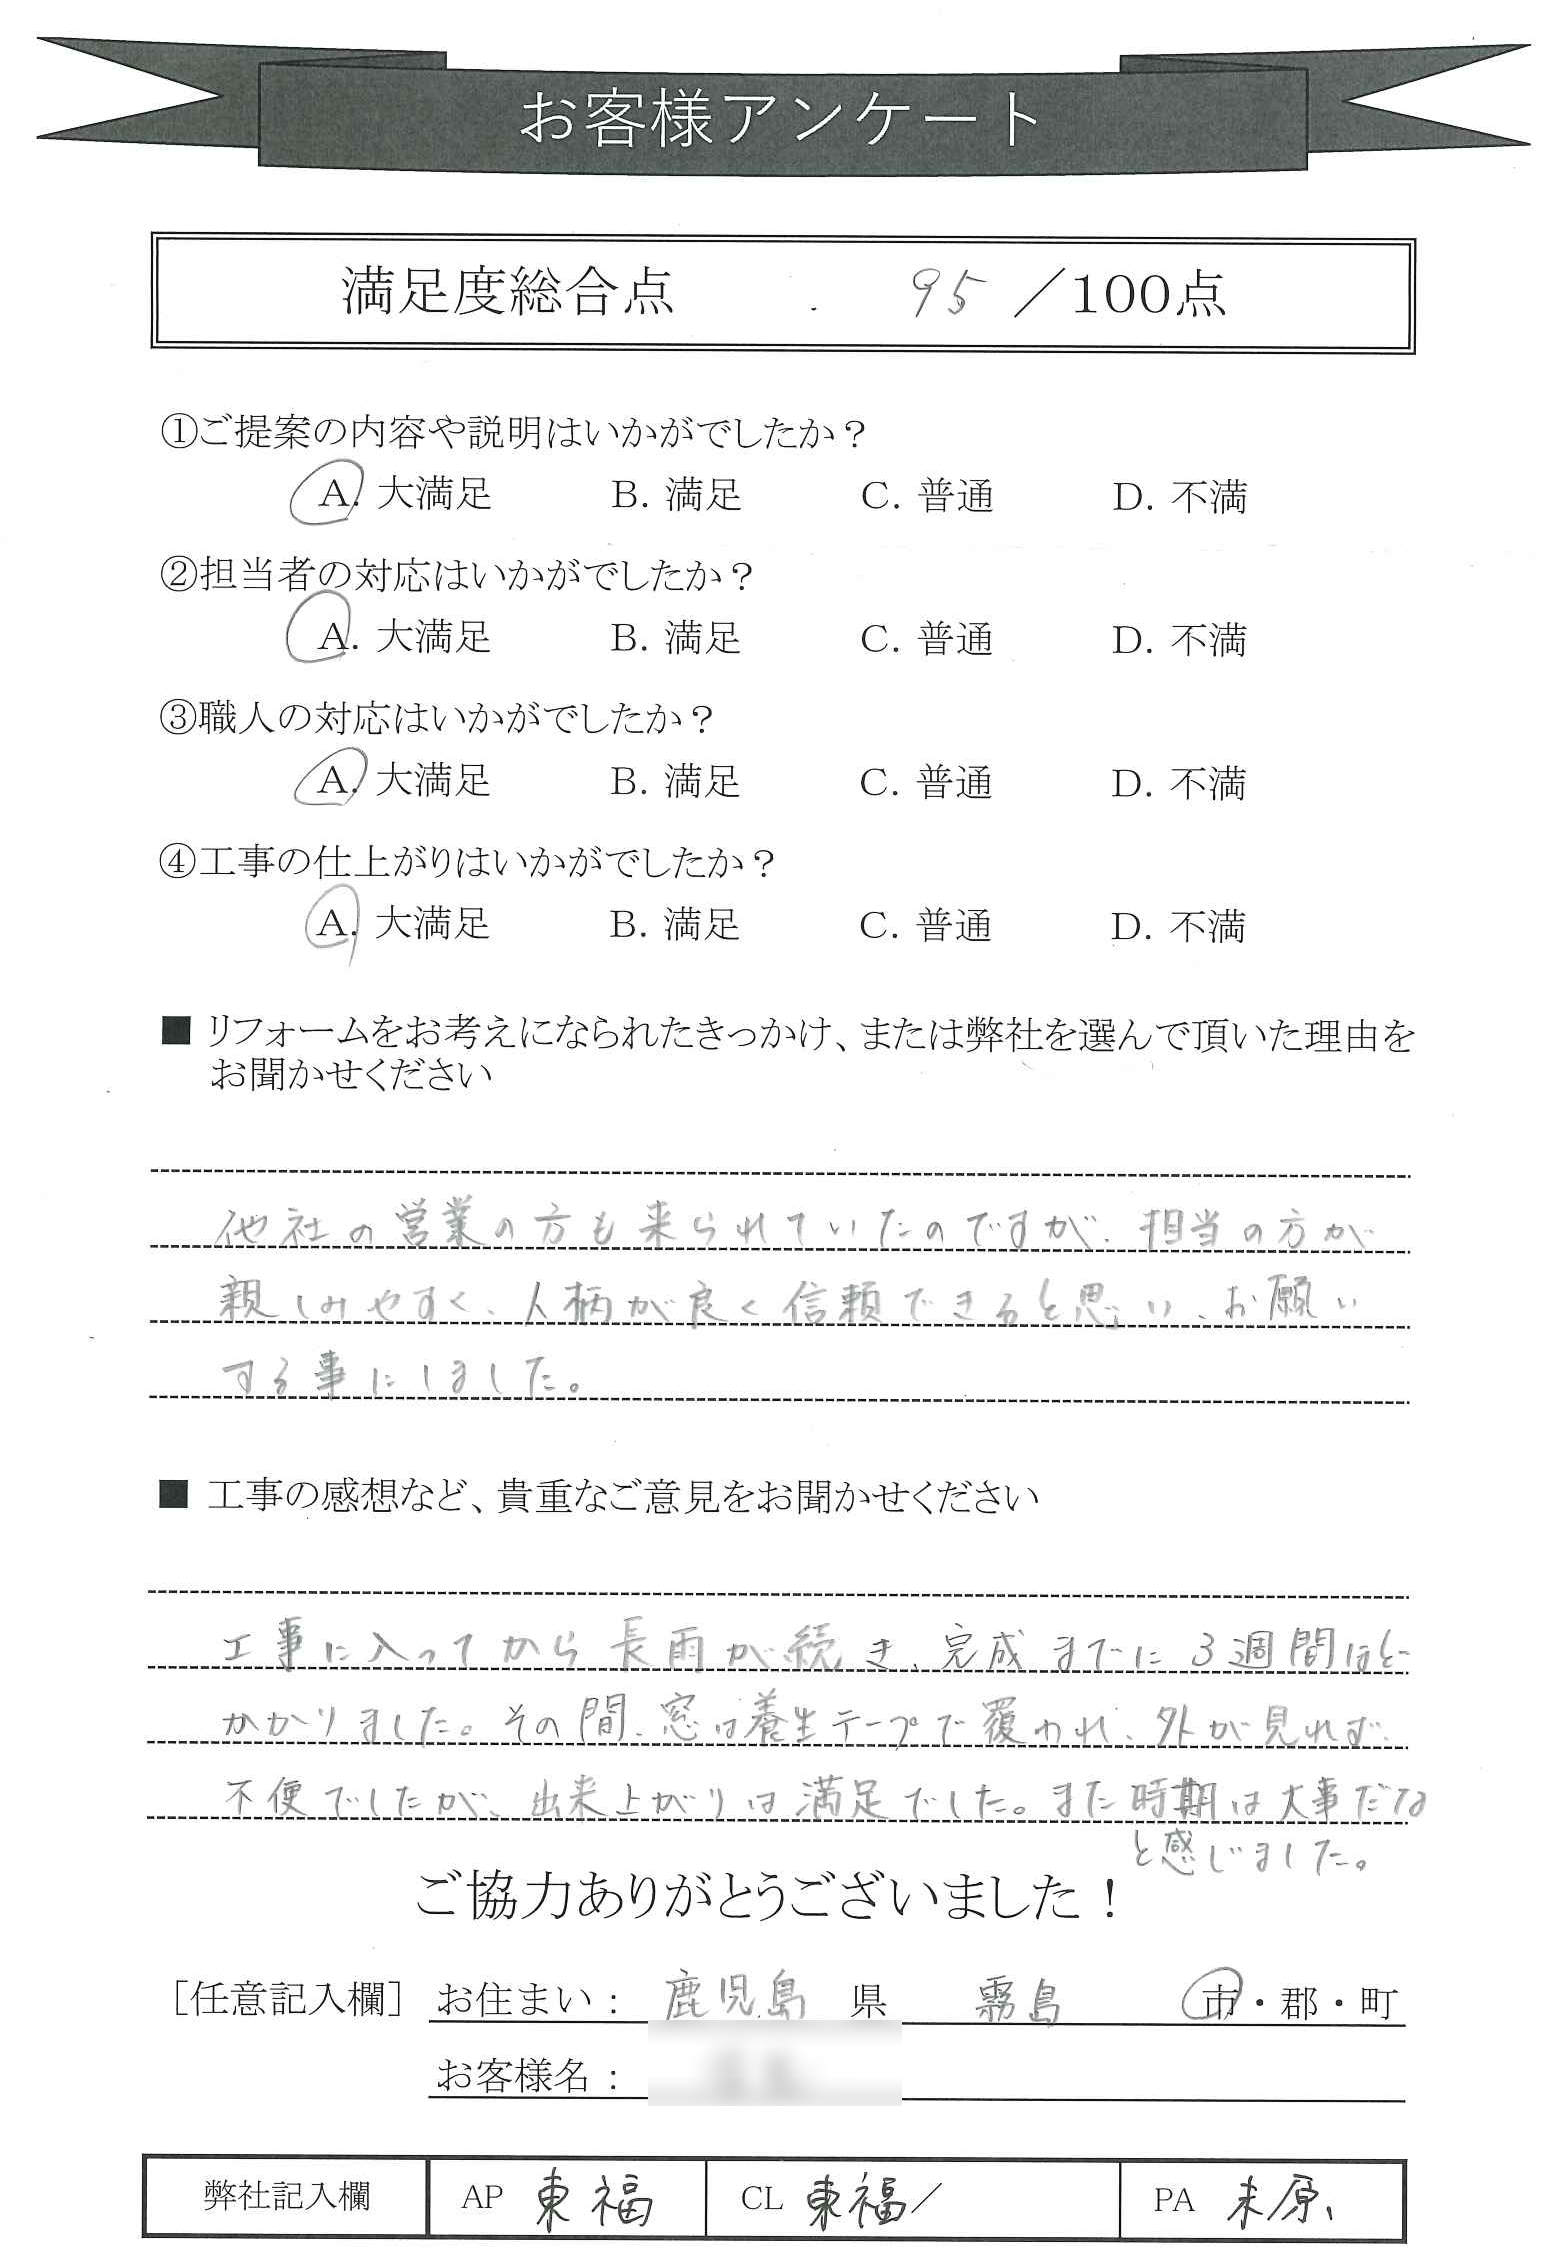 お客様アンケート
満足度総合点 95 ／100点
①ご提案の内容や説明はいかがでしたか？
A. 大満足 B. 満足 C. 普通 D. 不満
②担当者の対応はいかがでしたか？
A. 大満足 B. 満足 C. 普通 D. 不満
③職人の対応はいかがでしたか？
A. 大満足 B. 満足 C. 普通 D. 不満
④工事の仕上がりはいかがでしたか？
A. 大満足 B. 満足 C. 普通 D. 不満
■ リフォームをお考えになられたきっかけ、または弊社を選んで頂いた理由を
お聞かせください
他社の営業の方も来られていたのですが、担当の方が
親しみやすく、人柄が良く信頼できると思い、お願い
する事にしました。
■ 工事の感想など、貴重なご意見をお聞かせください
工事に入ってから長雨が続き、完成までに3週間ほど
かかりました。その間、窓は養生テープで覆われ、外が見れず、
不便でしたが、出来上がりは満足でした。また時期は大事だな
と感じました。
ご協力ありがとうございました！
［任意記入欄］ お住まい： 鹿児島 県 霧島 市・郡・町
お客様名：
弊社記入欄 AP 東福 CL 東福／ PA 末原